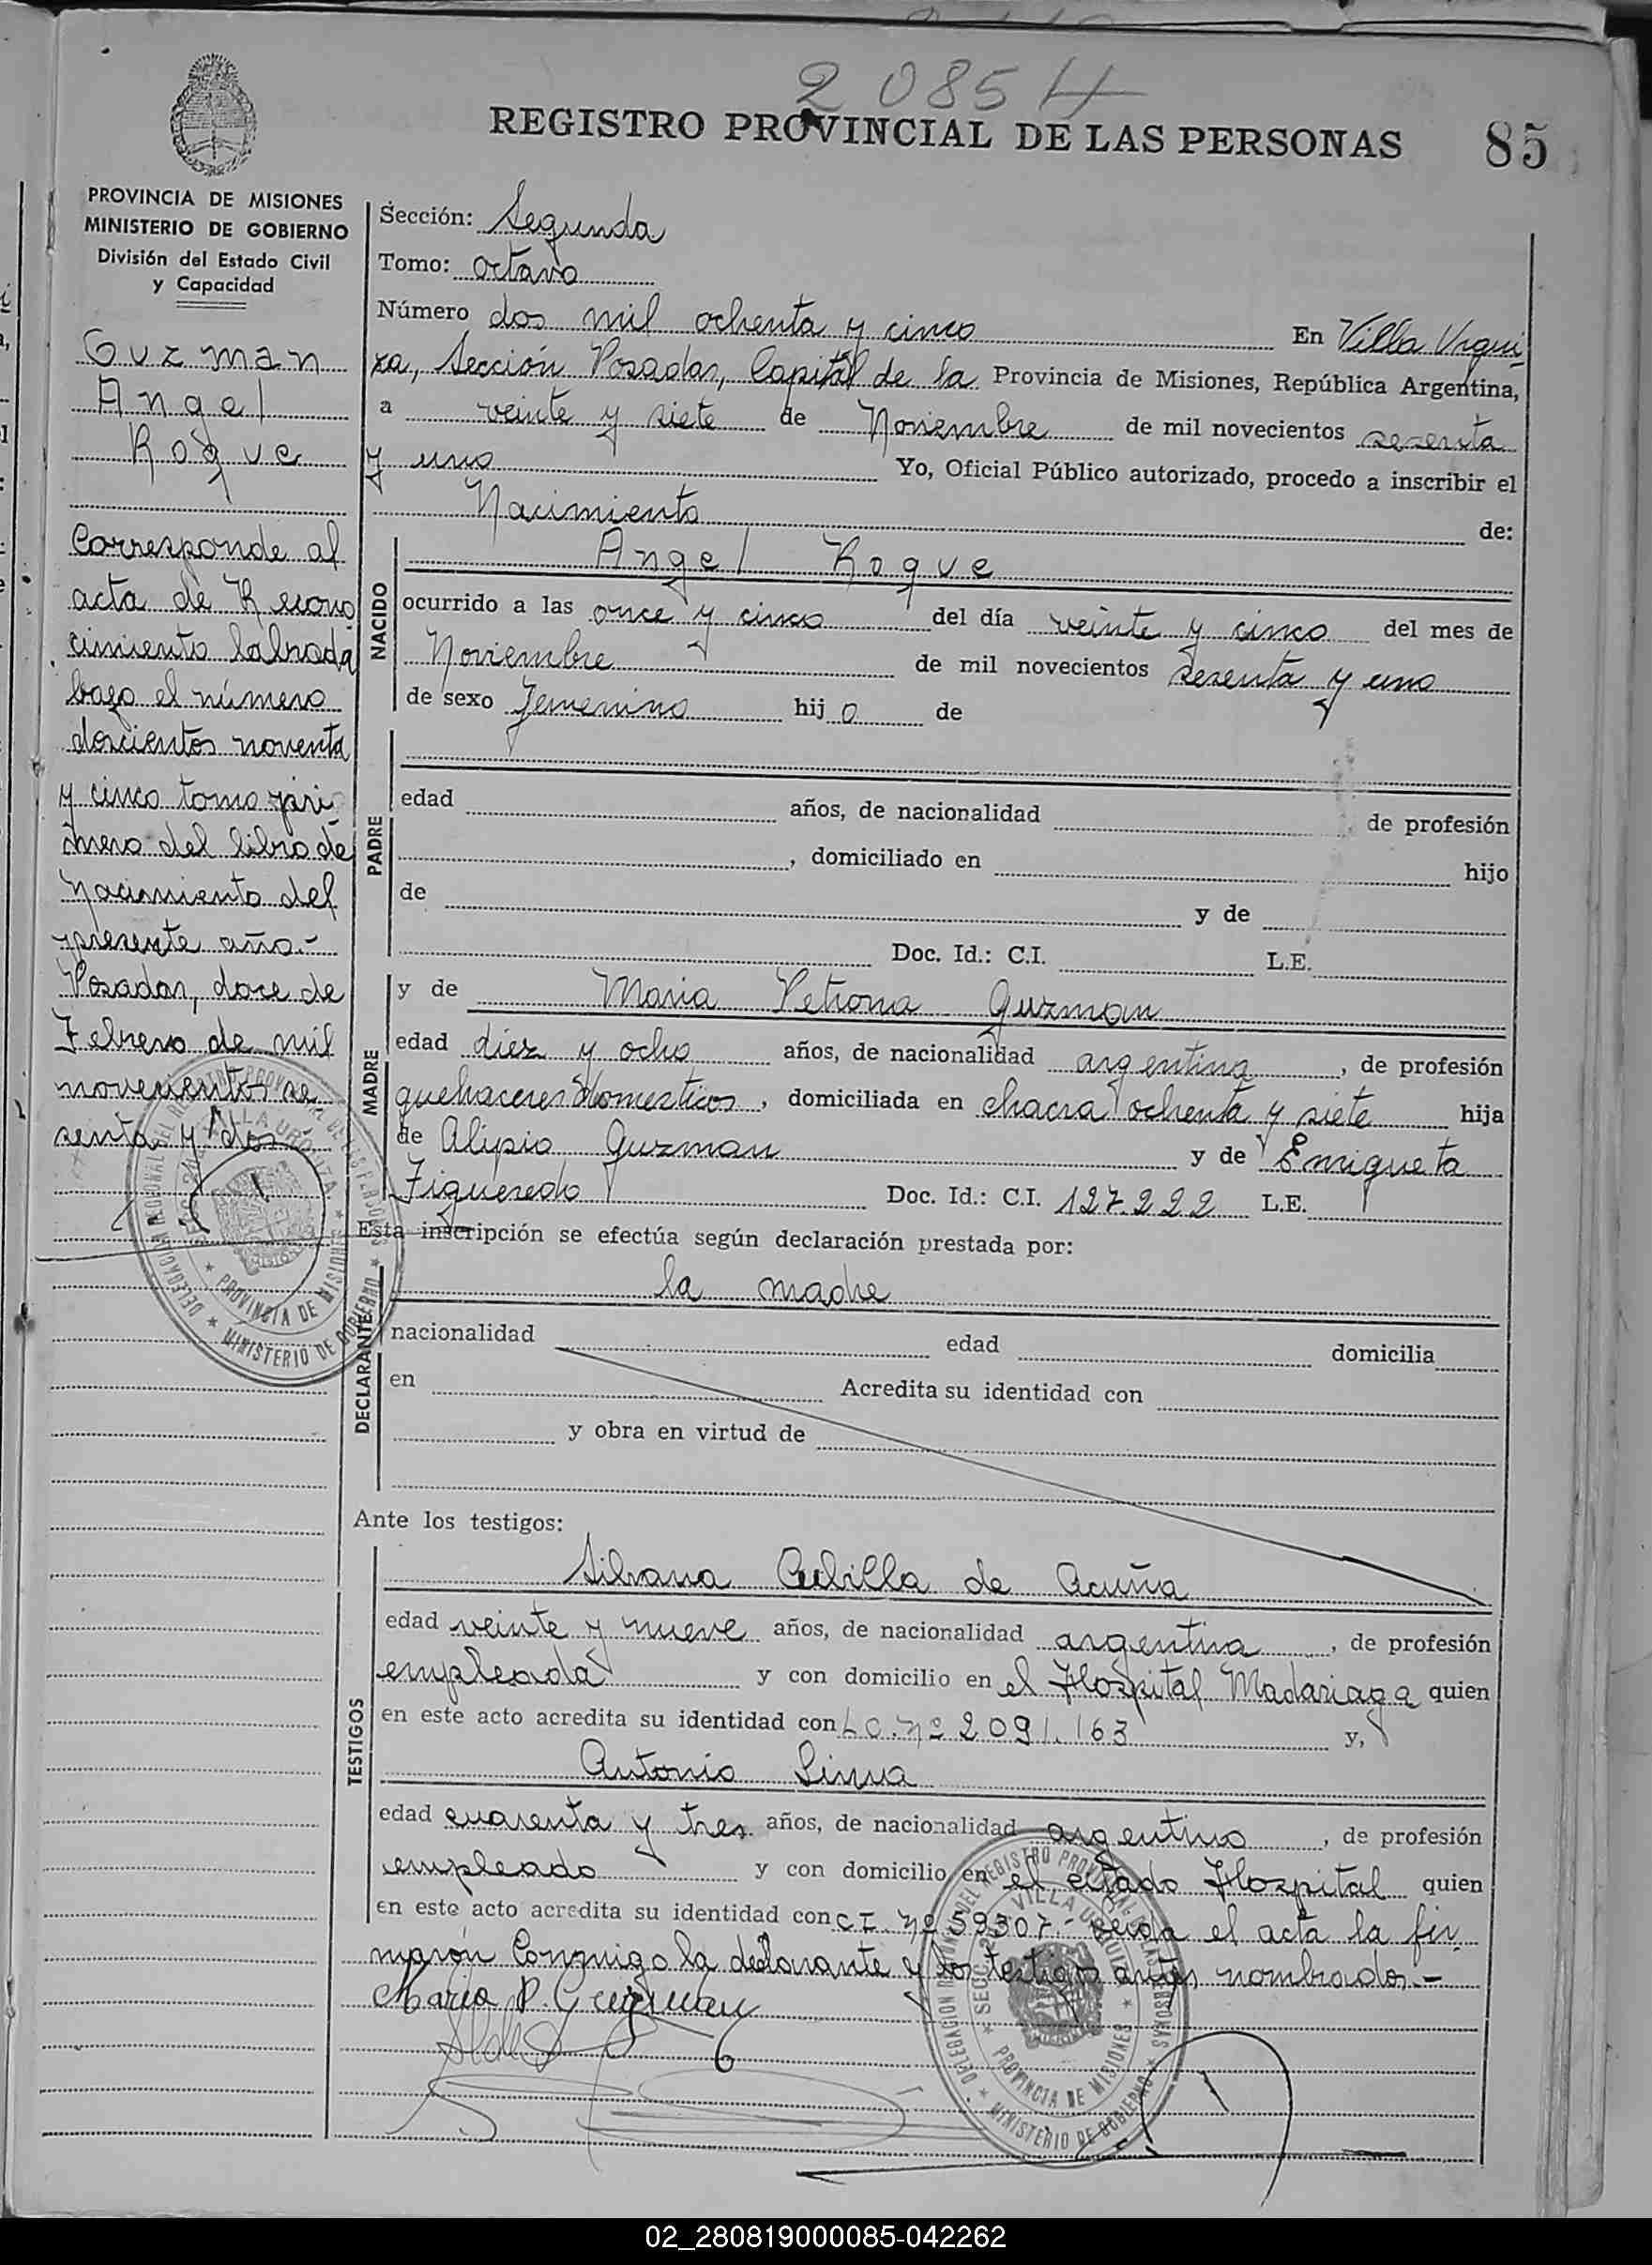 2085 H
REGISTRO PROVINCIAL DE LAS PERSONAS 85
PROVINCIA DE MISIONES
MINISTERIO DE GOBIERNO
División del Estado Civil
y Capacidad
Guzman
Angel
Roque
Corresponde al
acta de Recono
cimiento labrada
bajo el número
doscientos noventa
y cinco tomo pri
mero del libro de
Nacimiento del
presente año.-
Posadas, doce de
Febrero de mil
novecientos se
senta y dos
Sección: Segunda
Tomo: octavo
Número dos mil ochenta y cinco En Villa Urqui
za, Sección Posadas, Capital de la Provincia de Misiones, República Argentina,
a veinte y siete de Noviembre de mil novecientos sesenta
y uno Yo, Oficial Público autorizado, procedo a inscribir el
Nacimiento de:
NACIDO
Angel Roque
ocurrido a las once y cinco del día veinte y cinco del mes de
Noviembre de mil novecientos sesenta y uno
de sexo femenino hijo de
PADRE
edad años, de nacionalidad de profesión
, domiciliado en hijo
de y de
Doc. Id.: C.I. L.E.
MADRE
y de Maria Petrona Guzman
edad diez y ocho años, de nacionalidad argentina, de profesión
quehaceres domesticos, domiciliada en chacra ochenta y siete hija
de Alipio Guzman y de Enriqueta
Figueredo Doc. Id.: C.I. 127.222 L.E.
Esta inscripción se efectúa según declaración prestada por:
DECLARANTE
la madre
nacionalidad edad domicilia
en Acredita su identidad con
y obra en virtud de
Ante los testigos:
TESTIGOS
Silvana Cubilla de Acuña
edad veinte y nueve años, de nacionalidad argentina, de profesión
empleada y con domicilio en el Hospital Madariaga quien
en este acto acredita su identidad con L.C. Nº 2091.163 y,
Antonio
edad cuarenta y tres años, de nacionalidad argentino, de profesión
empleado y con domicilio en el citado Hospital quien
en este acto acredita su identidad con C I Nº 59307.- Leida el acta la fir
maron Conmigo la declarante y los testigos antes nombrados.-
Maria P. Guzman
DELEGACION REGIONAL DEL REGISTRO PROVINCIAL DE LAS PERSONAS
VILLA URQUIZA
PROVINCIA DE MISIONES
MINISTERIO DE GOBIERNO
02_280819000085-042262